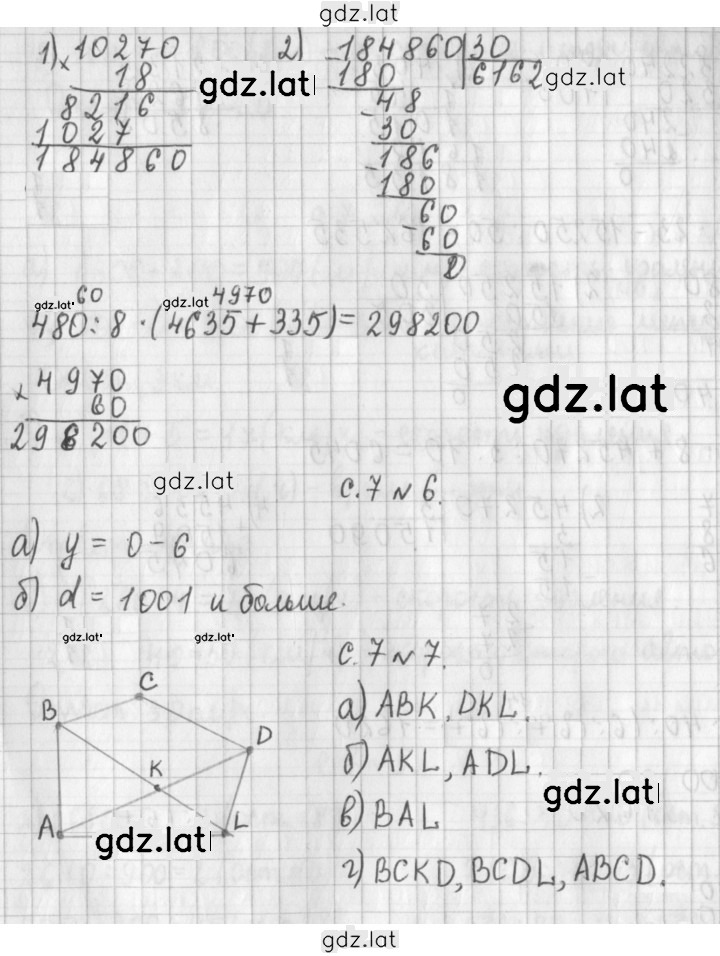 gdz.lat
1) 10270 2) 184860 30
× 18 gdz.lat - 180 6162 gdz.lat
8216 - 48
1027 30
184860 - 186
180
60
- 60
0
gdz.lat 60 gdz.lat 4970
480 : 8 · (4635 + 335) = 298200
× 4970
60
298200
gdz.lat
gdz.lat
с. 7 № 6.
а) y = 0 - 6
б) d = 1001 и больше.
gdz.lat gdz.lat
с. 7 № 7.
C
B
D
K
A
L
gdz.lat
а) ABK, DKL.
б) AKL, ADL.
gdz.lat
в) BAL
г) BCKD, BCDL, ABCD.
gdz.lat